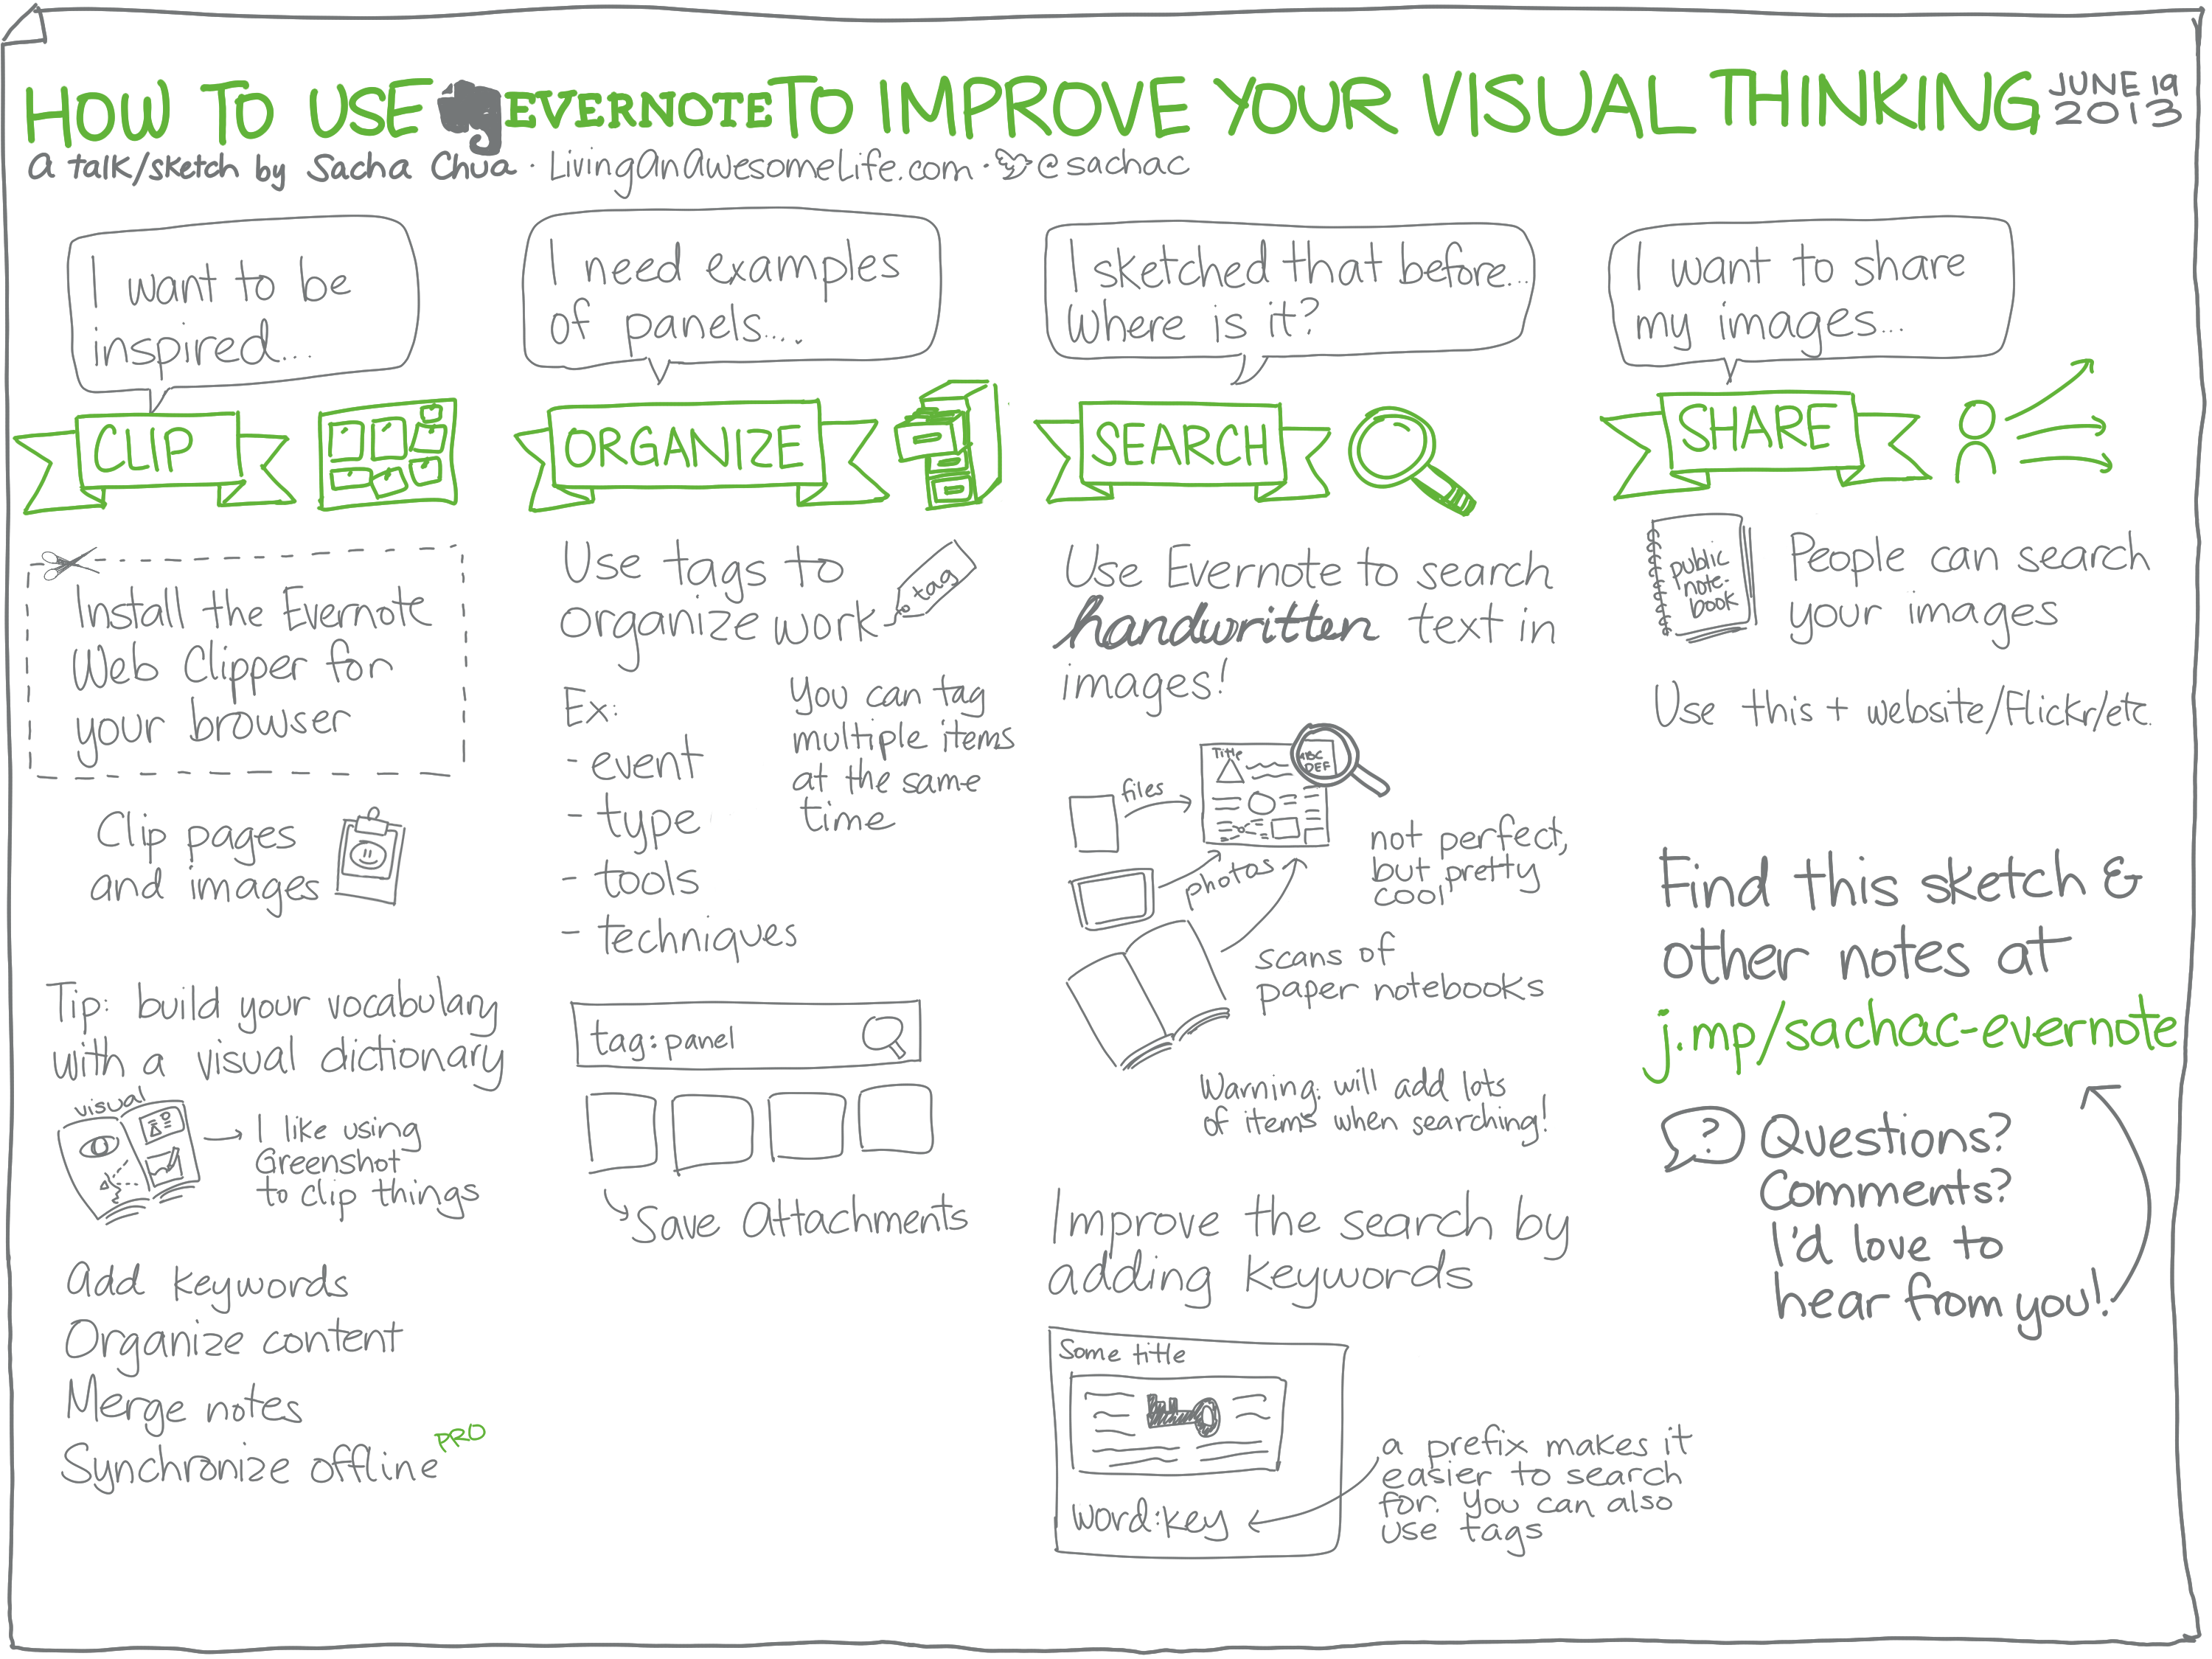 HOW TO USE EVERNOTE TO IMPROVE YOUR VISUAL THINKING
JUNE 19
2013
a talk/sketch by Sacha Chua · LivingAnAwesomeLife.com · @sachac
I want to be
inspired...
CLIP
Install the Evernote
Web Clipper for
your browser
Clip pages
and images
Tip: build your vocabulary
with a visual dictionary
visual
I like using
Greenshot
to clip things
Add keywords
Organize content
Merge notes
Synchronize offline PRO
I need examples
of panels....
ORGANIZE
Use tags to
organize work
tag
Ex:
- event
- type
- tools
- techniques
You can tag
multiple items
at the same
time
tag:panel
Save Attachments
I sketched that before...
Where is it?
SEARCH
Use Evernote to search
handwritten text in
images!
files
Title
ABC
DEF
photos
not perfect,
but pretty
cool
scans of
paper notebooks
Warning: will add lots
of items when searching!
Improve the search by
adding keywords
Some title
word:key
a prefix makes it
easier to search
for. You can also
use tags
I want to share
my images...
SHARE
public
note-
book
People can search
your images
Use this + website/Flickr/etc.
Find this sketch &
other notes at
j.mp/sachac-evernote
?
Questions?
Comments?
I'd love to
hear from you!